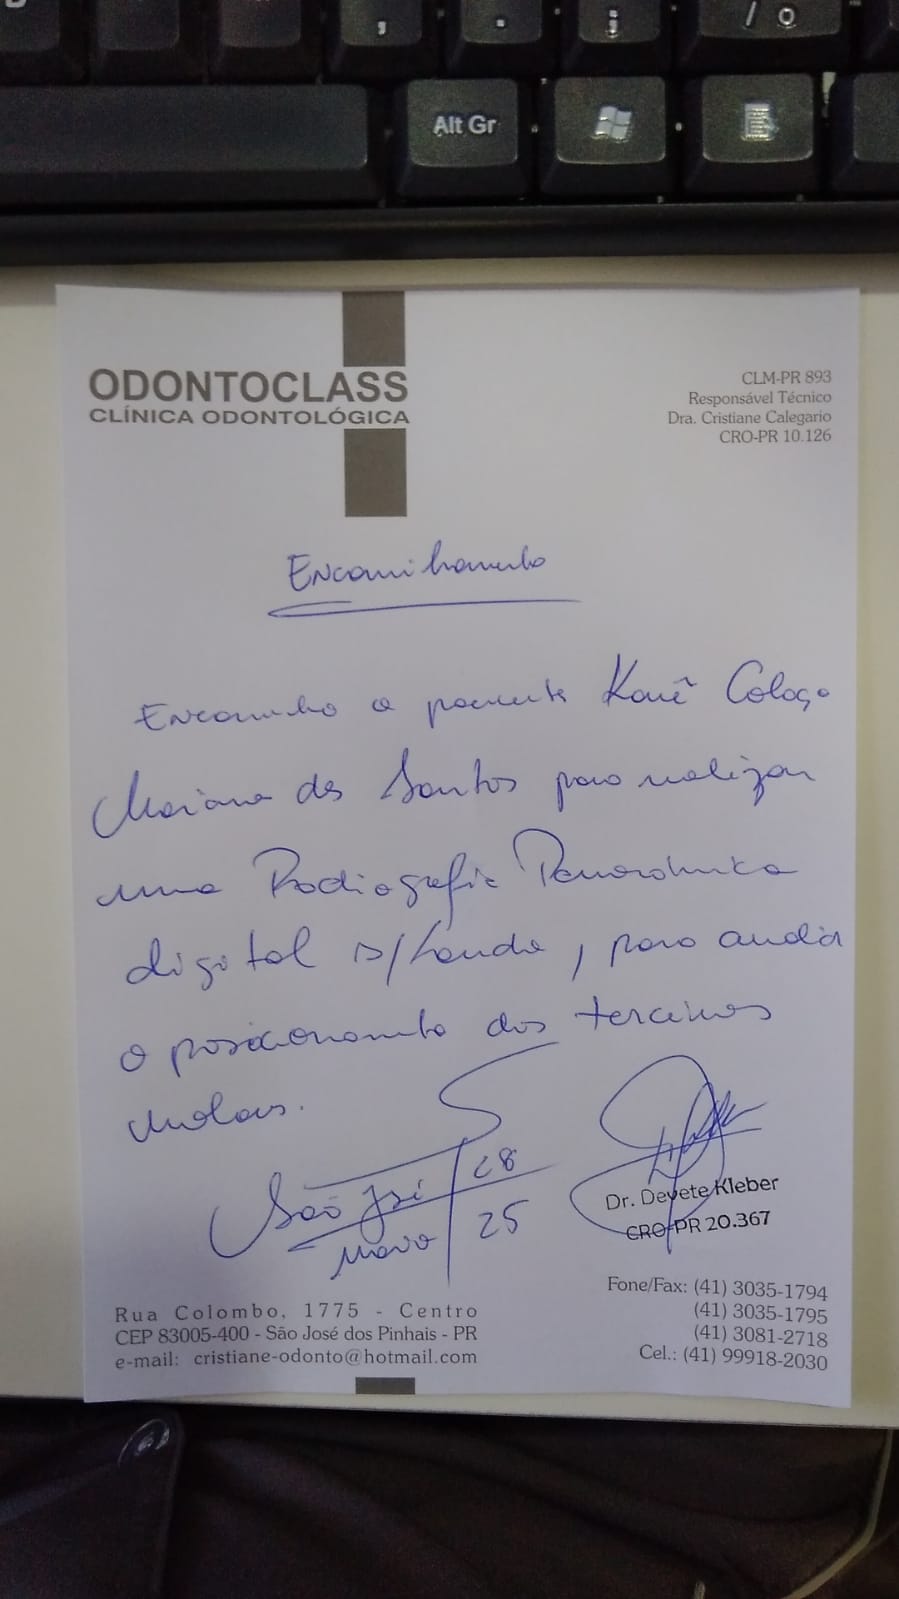 Alt Gr
ODONTOCLASS
CLÍNICA ODONTOLÓGICA
CLM-PR 893
Responsável Técnico
Dra. Cristiane Calegario
CRO-PR 10.126
Encaminhamento
Encaminho a paciente Kauê Colaço
dos Santos para realizar
uma Radiografia Panorâmica
digital s/laudo, para avaliar
o posicionamento dos terceiros
molares.
São José 28
25
Dr. Devete Kleber
CRO-PR 20.367
Rua Colombo, 1775 - Centro
CEP 83005-400 - São José dos Pinhais - PR
e-mail: cristiane-odonto@hotmail.com
Fone/Fax: (41) 3035-1794
(41) 3035-1795
(41) 3081-2718
Cel.: (41) 99918-2030